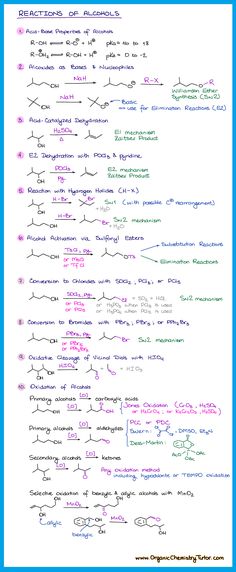 REACTIONS OF ALCOHOLS
1. Acid-Base Properties of Alcohols
2. Alkoxides as Bases & Nucleophiles
NaH
R-X
Williamson Ether
Synthesis (SN2)
NaH
Basic
use for Elimination Reactions (E2)
3. Acid-Catalyzed Dehydration
H₂SO₄
Δ
E1 mechanism
Zaitsev Product
4. E2 Dehydration with POCl₃ & pyridine
POCl₃
Py.
E2 mechanism
Zaitsev Product
5. Reaction with Hydrogen Halides (H-X)
H-Br
+ H₂O
SN1 (with possible C⊕ rearrangement)
H-Br
+ H₂O
SN2 mechanism
6. Alcohol Activation via Sulfonyl Esters
TsCl, Py.
or MsCl
or TfCl
OTs
Substitution Reactions
Elimination Reactions
7. Conversion to Chlorides with SOCl₂, PCl₃, or PCl₅
SOCl₂, Py.
or PCl₃
or PCl₅
SN2 mechanism
8. Conversion to Bromides with PBr₃, PBr₅, or PPh₃Br₂
PBr₃
or PBr₅
or PPh₃Br₂
SN2 mechanism
9. Oxidative Cleavage of Vicinal Diols with HIO₄
HIO₄
10. Oxidation of Alcohols
Primary alcohols [O] carboxylic acids
[O]
Jones Oxidation (CrO₃, H₂SO₄)
Primary alcohols [O] aldehydes
[O]
PCC or PDC
Swern:
DMSO, Et₃N
Dess-Martin:
Secondary alcohols [O] ketones
[O]
Any oxidation method
including hypochlorite or TEMPO oxidation
Selective oxidation of benzylic & allylic alcohols with MnO₂
MnO₂
allylic
benzylic
www.OrganicChemistryTutor.com